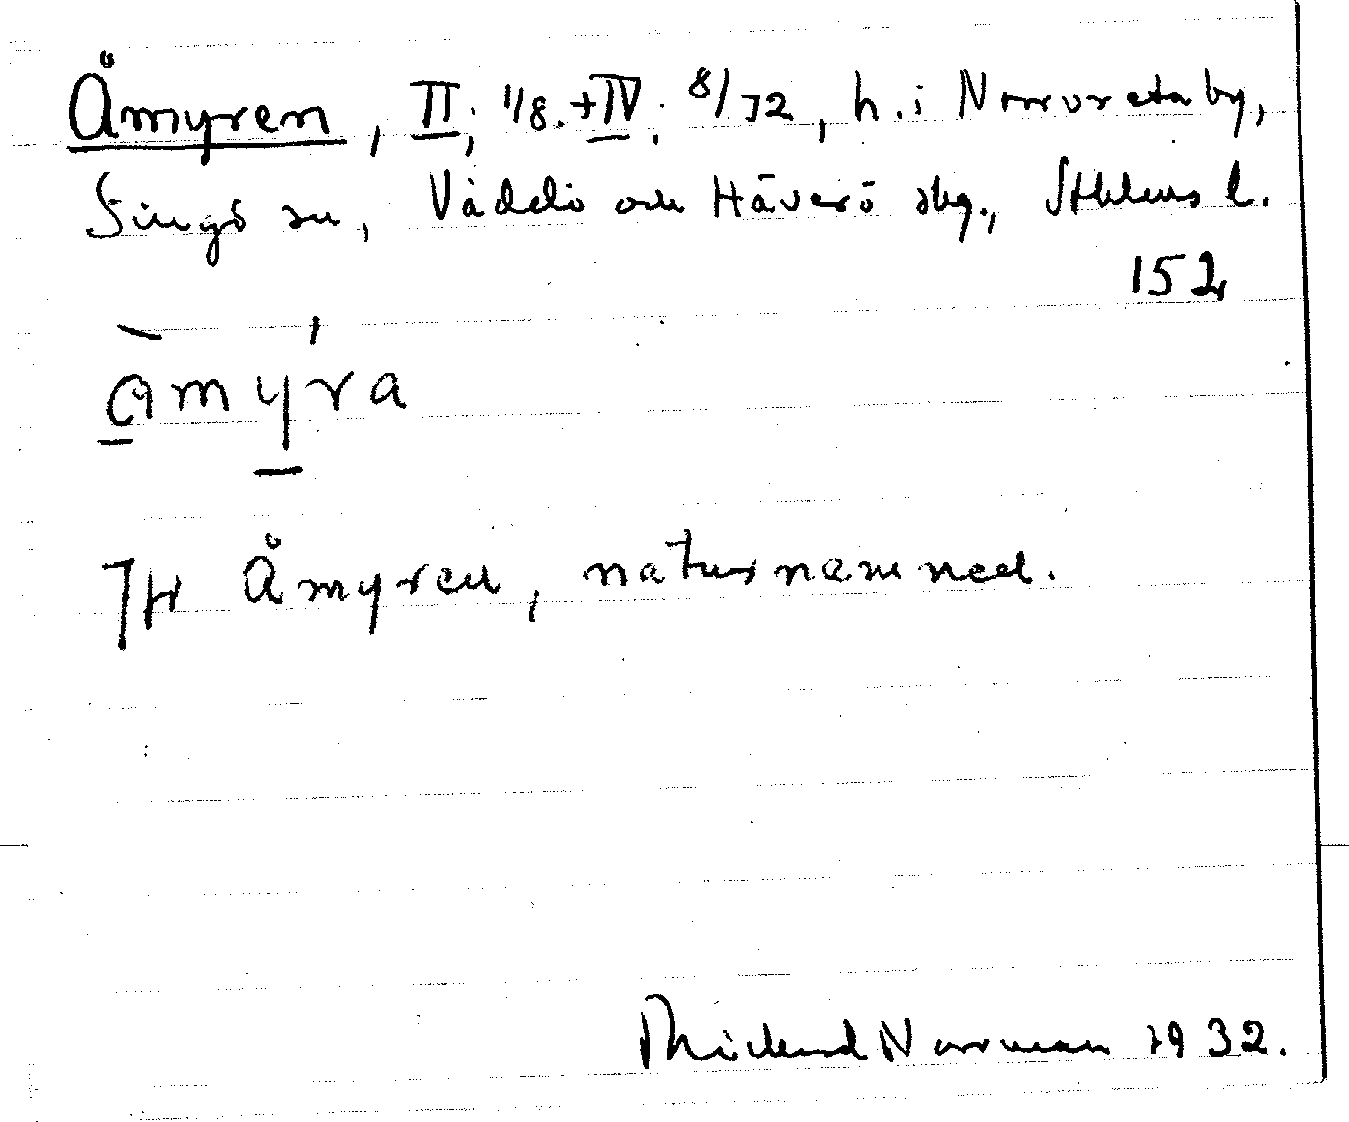 Åmyren, II; 1/8. + IV: 8/72, h. i Norrvreta by,
Singö sn, Väddö och Häverö skg., Sthlms l.
152
åmyra
Jfr Åmyren, naturnamned.
Norrman 1932.